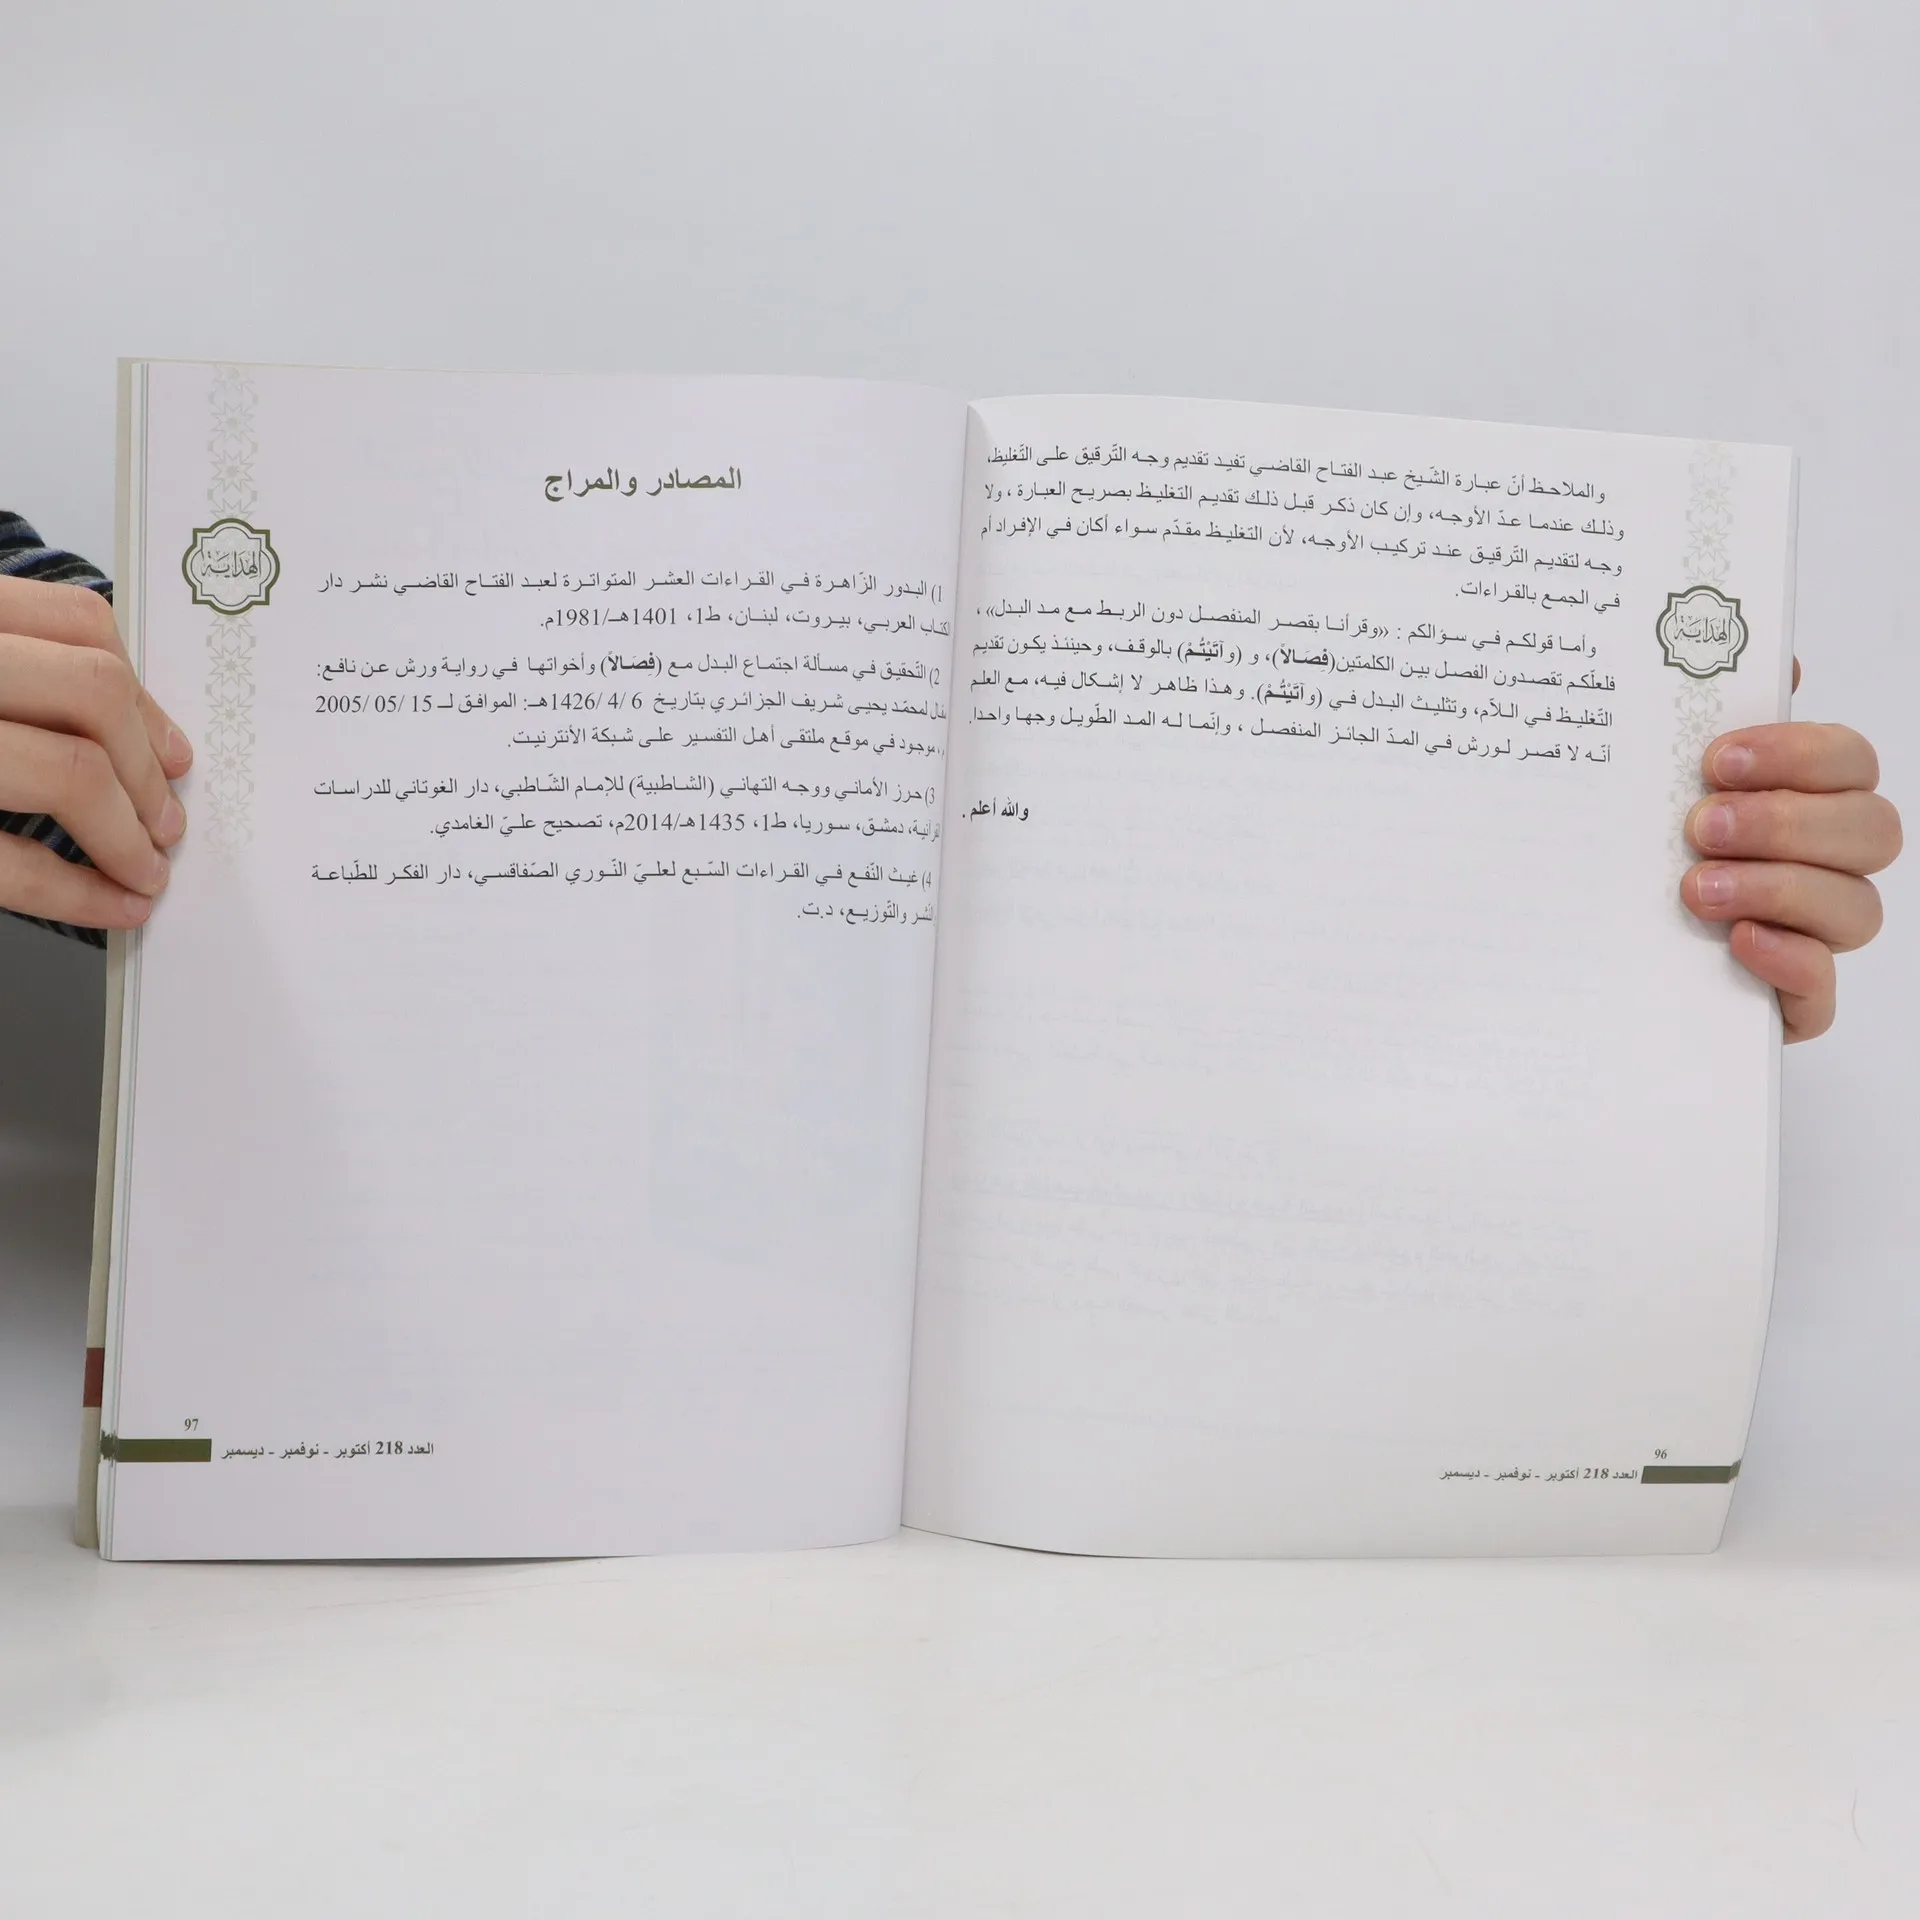 والملاحظ أنّ عبارة الشّيخ عبد الفتاح القاضي تفيد تقديم وجه التّرقيق على التّغليظ،
وذلك عندما عدّ الأوجه، وإن كان ذكر قبل ذلك تقديم التغليظ بصريح العبارة ، ولا
وجه لتقديم التّرقيق عند تركيب الأوجه، لأن التغليظ مقدّم سواء أكان في الإفراد أم
في الجمع بالقراءات.
وأما قولكم في سؤالكم : «وقرأنا بقصر المنفصل دون الربط مع مد البدل» ،
فلعلّكم تقصدون الفصل بين الكلمتين(فِصَالاً)، و (وآتَيْتُمْ) بالوقف، وحينئذ يكون تقديم
التّغليظ في اللاّم، وتثليث البدل في (وآتَيْتُمْ). وهذا ظاهر لا إشكال فيه، مع العلم
أنّه لا قصر لورش في المدّ الجائز المنفصل ، وإنّما له المد الطّويل وجها واحدا.
والله أعلم .
الهداية
96
العدد 218 أكتوبر - نوفمبر - ديسمبر
المصادر والمراج
الهداية
1) البدور الزّاهرة في القراءات العشر المتواترة لعبد الفتاح القاضي نشر دار
العربي، بيروت، لبنان، ط1، 1401هـ/1981م.
2) التّحقيق في مسألة اجتماع البدل مع (فِصَالاً) وأخواتها في رواية ورش عن نافع:
لمحمّد يحيى شريف الجزائري بتاريخ 6 /4 /1426هـ: الموافق لـ 15 /05 /2005
موجود في موقع ملتقى أهل التفسير على شبكة الأنترنيت.
3) حرز الأماني ووجه التهاني (الشاطبية) للإمام الشّاطبي، دار الغوثاني للدراسات
دمشق، سوريا، ط1، 1435هـ/2014م، تصحيح عليّ الغامدي.
4) غيث النّفع في القراءات السّبع لعليّ النّوري الصّفاقسي، دار الفكر للطّباعة
والتّوزيع، د.ت.
97
العدد 218 أكتوبر - نوفمبر - ديسمبر